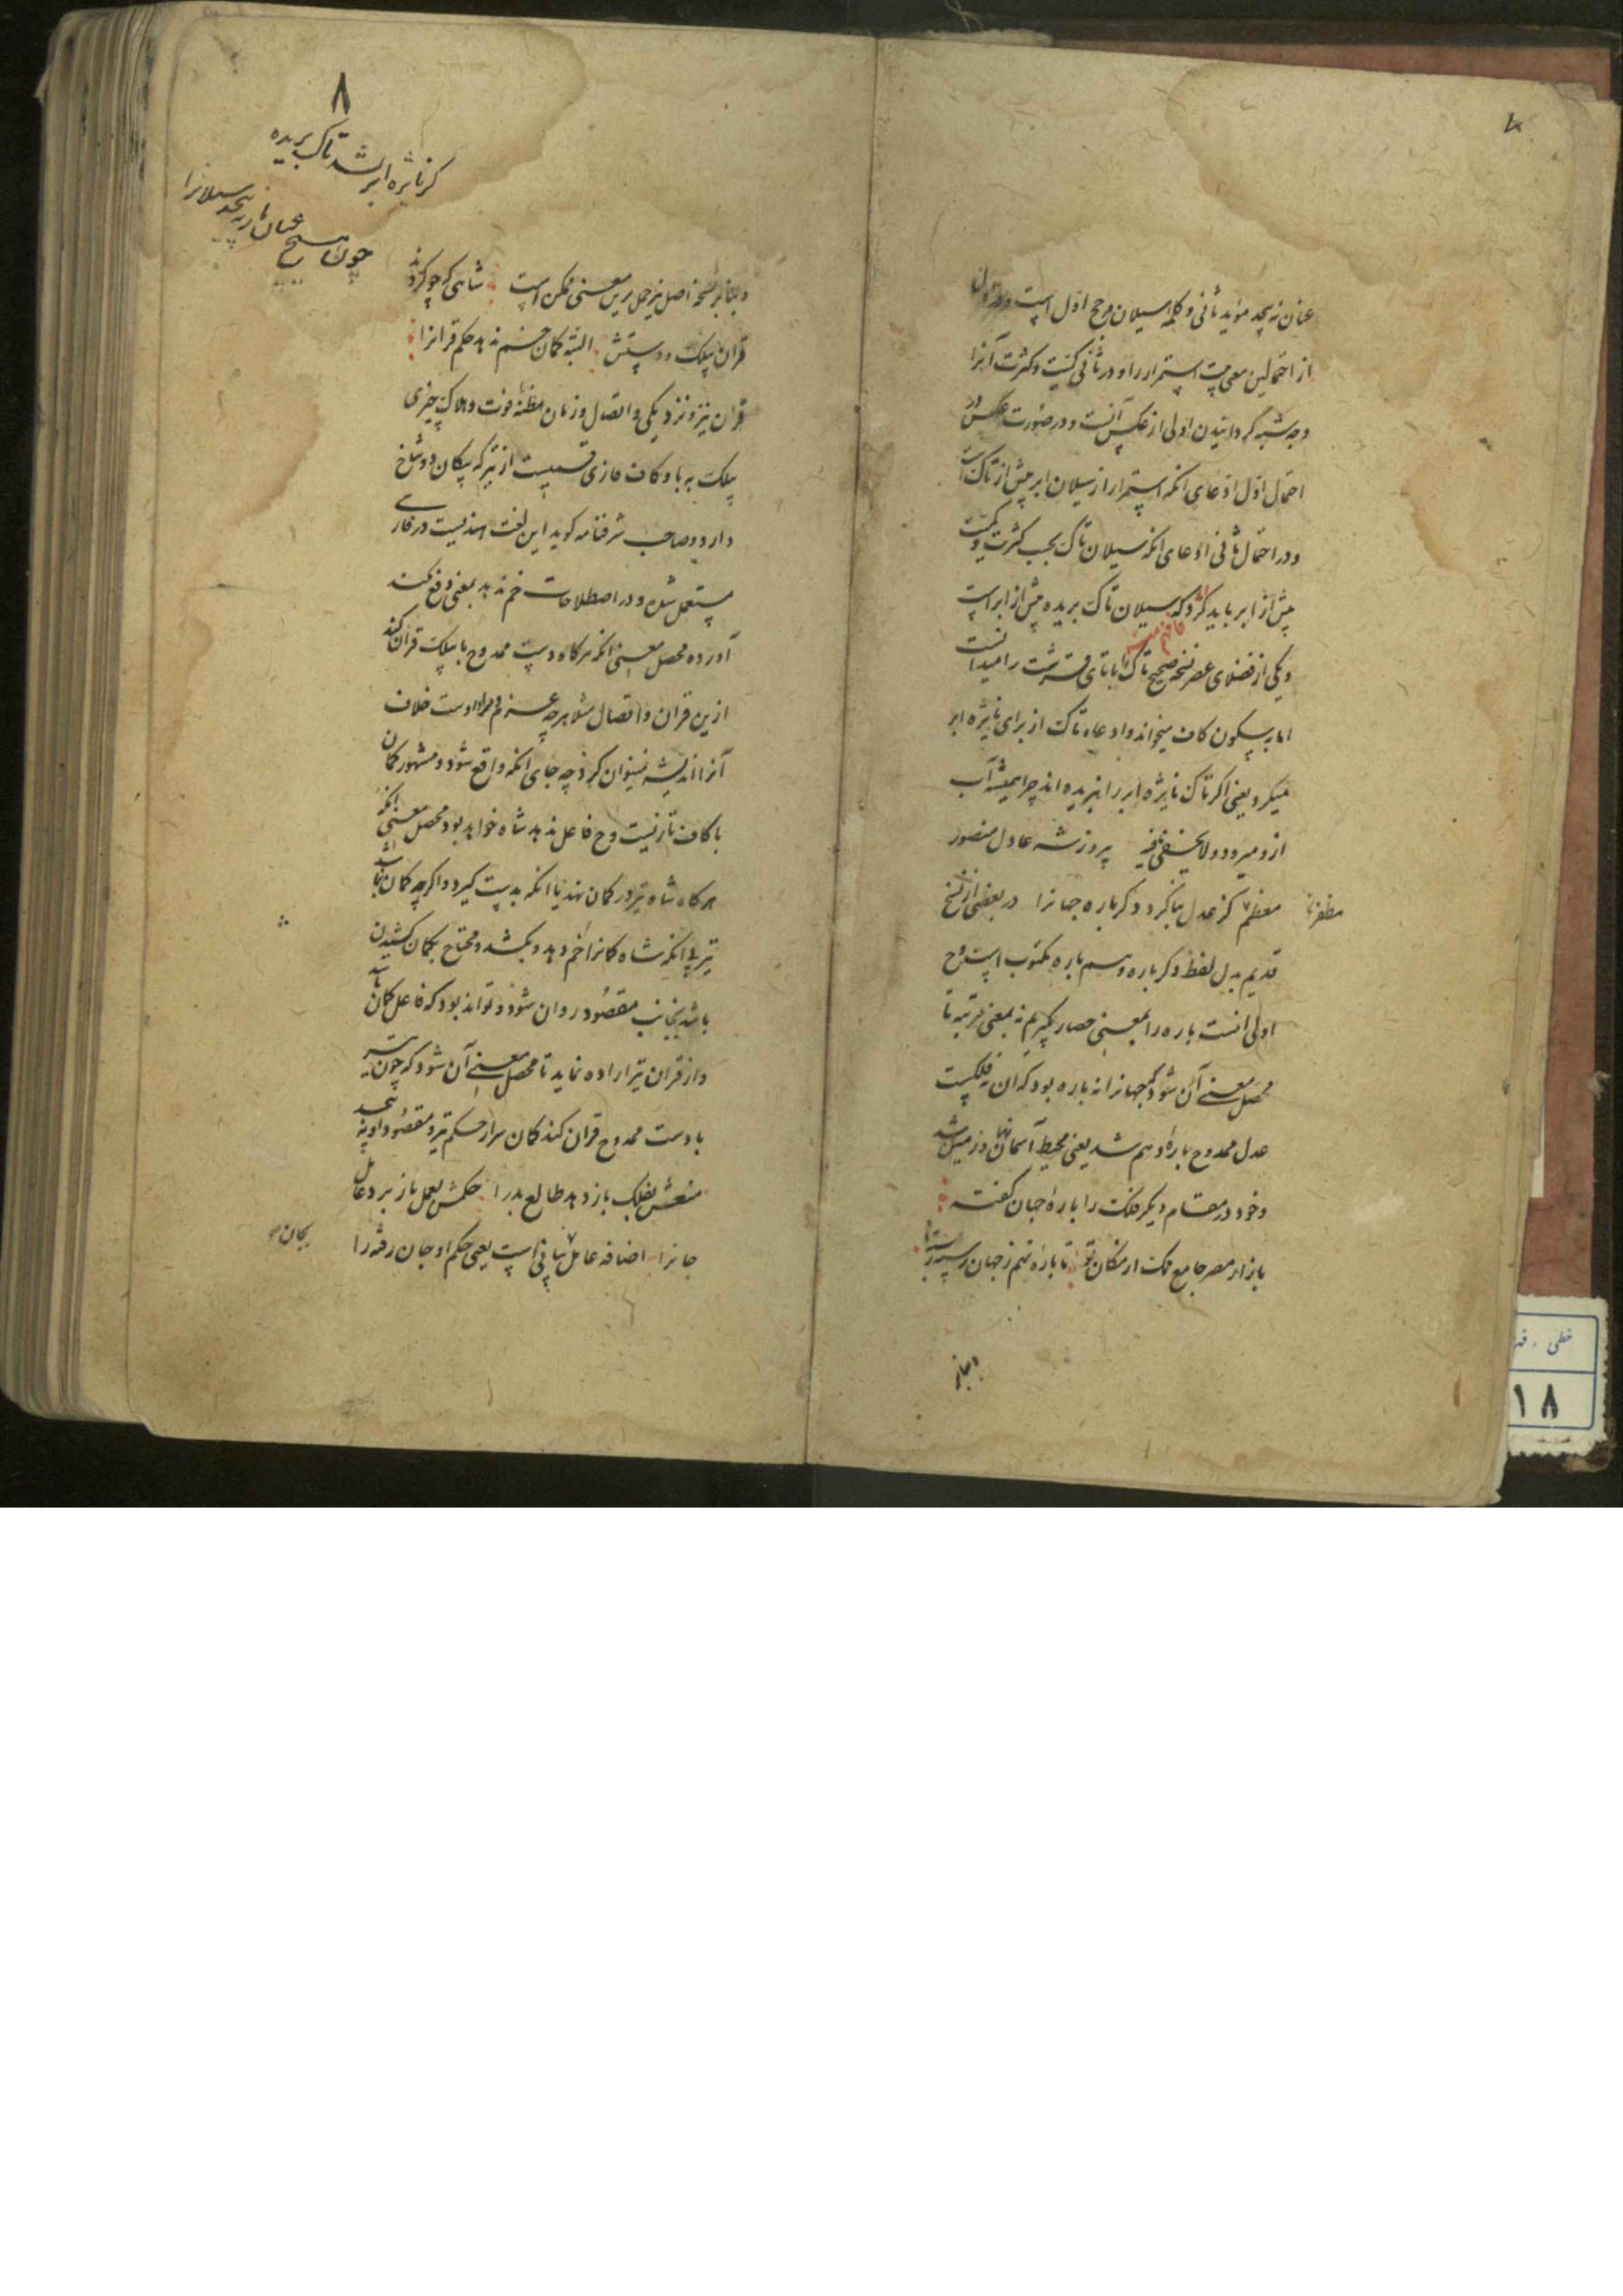 عنان نه پیچد مؤید ثانی و کلمه سیلان مرجح اول است و در اول
از احتمالین معیت استمرار را و در ثانی کمیت و کثرت آنرا
وجه شبه گردانیدن اولی از عکس آنست و در صورت عکس در
احتمال اول ادعای آنکه استمرار از سیلان ابر پیش از تاک است
و در احتمال ثانی ادعای آنکه سیلان تاک بحسب کثرت و کمیت
پیش از ابر باید کرد که سیلان تاک بریده پیش از ابر است
و یکی از فضلای عصر نسخه صحیح تاک را با تای قرشت را میدانست
اما بسکون کاف میخواند و ادعاء تاک از برای نایژه ابر
میکرد یعنی اگر تاک نایژه ابر را نبریده اند چرا همیشه آب
ازو میرود و لا یخفی فیه پیروز شه عادل منصور
مظفر معظم کز عدل بنا کرد دگرباره جهانرا در بعضی از نسخ
قدیم بدل لفظ دگرباره دهم باره مکتوب است و ح
اولی آنست باره را بمعنی حصار گیریم نه بمعنی مرتبه تا
محصل معنی آن شود که جهانرا نه باره بود که آن نه فلکست
عدل ممدوح باره دهم شد یعنی محیط آسمان نها و زمین شد
و خود در مقام دیگر فلک را باره جهان گفته
بازار مصر جامع ملک از مکان تو تا باره نهم ز جهان رسیده
۸
کز نایژه ابر نشد تاک بریده
چون هیچ عنان باز نپیچد سیلانرا
و بنابر نسخه اصل نیز حمل برین معنی ممکن است شاهی که چو کردند
قران بیلک و دستش البته کمان خم ندهد حکم قرانرا
قران تیز و نزدیکی و اتصال و زمان مظنه فوت و هلاک چیزی
بیلک به با و کاف تازی قسمیست از تیر که پیکان دو شاخ
دارد و صاحب شرفنامه گوید این لغت هندیست در فارسی
مستعمل شده و در اصطلاحات خم ندهد بمعنی دفع نکند
آورده محصل معنی آنکه هرگاه دست ممدوح با بیلک قران کند
ازین قران و اتصال مثلا هرچه عزم و مراد اوست خلاف
آنرا اندیشه نمیتوان کرد چه جای آنکه واقع شود و مشهور کمان
با کاف تازیست و ح فاعل ندهد شاه خواهد بود محصل معنی آنکه
هرگاه شاه تیر در کمان نهد یا آنکه بدست گیرد و اگرچه کمان نباشد
تیر بی آنکه شاه کمانرا خم دهد و بکشد و محتاج بکمان کشیدن
باشد بجانب مقصود روان شود و تواند بود که فاعل کمان باشد
و از قران تیر اراده نماید تا محصل معنی آن شود که چون تیر
با دست ممدوح قران کند کمان سر از حکم تیر و مقصود او نپیچد
منعش بفلک باز دهد طالع بد را حکمش بعمل باز برد عامل
جانرا اضافه عامل بیانی است یعنی حکم او جان رفته را
بجان
خطی
۱۸